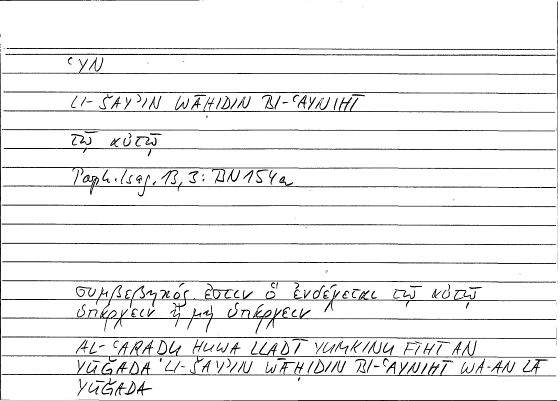 ʿYN
LI-ŠAYʾIN WĀḤIDIN BI-ʿAYNIHĪ
τῷ αὐτῷ
Porph. Isag. 13, 3: BN 154a
συμβεβηκός ἐστιν ὃ ἐνδέχεται τῷ αὐτῷ
ὑπάρχειν ἢ μὴ ὑπάρχειν
AL-ʿARAḌU HUWA LLAḎĪ YUMKINU FĪHĪ AN
YŪĞADA LI-ŠAYʾIN WĀḤIDIN BI-ʿAYNIHĪ WA-AN LĀ
YŪĞADA